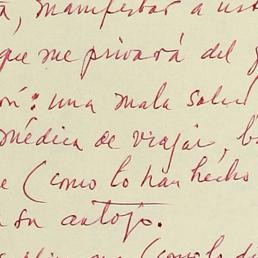 manifestar a ust
que me privará del g
ón: una mala salud
médica de viajar, b
e (como lo han hecho
a su antojo.
(como lo di